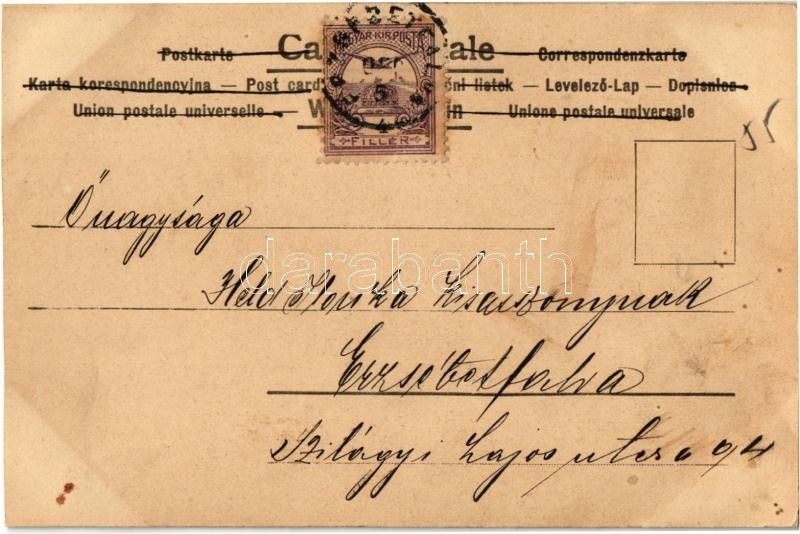 Postkarte Ca ale Correspondenzkarte
Karta korespondencyjna — Post card listek — Levelező-Lap — Dopisnice
Union postale universelle — W in Unione postale universale
MAGYAR KIR. POSTA
DEC
5
4
FILLÉR
55
Őnagysága
darabanth
Held Kisasszonynak
Erzsébetfalva
Szilágyi Lajos utcza 94